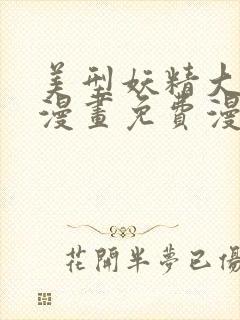 美型妖精大
漫畫免費漫
花開半夢已傷